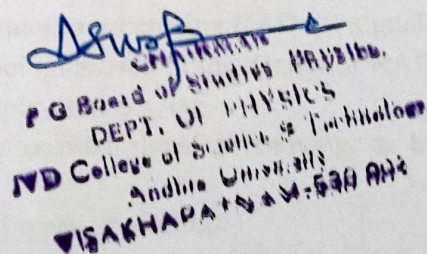 CHAIRMAN
P G Board of Studies Physics.
DEPT. Of PHYSICS
JVD College of Science & Technology
Andhra University
VISAKHAPATNAM-530 003